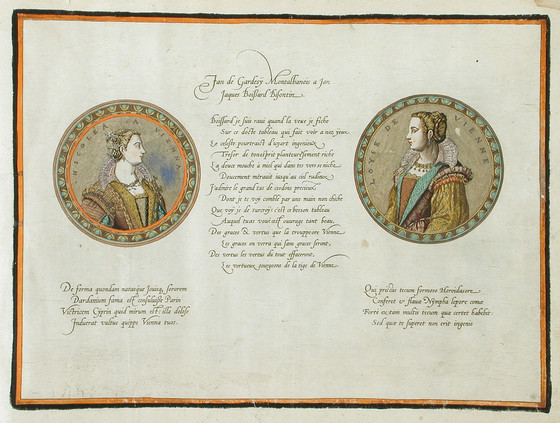 Jan de Gardesy Montalbanois a Jan
Jaques Boissard Bisontin.
NICOLEA A VIENNE
LOYSE DE VIENNE
Boissard je suis raui quand la veue je fiche
Sur ce docte tableau qui fait voir a noz yeux
Le celeste pourtraict d'esprit ingenieux
Tresor de
La douce mouche a miel qui dans tes vers se niche
Doucement me rauit iusqu'au ciel radieux
J'admire le grand tas de ces dons precieux
Dont je te voy comble par une main non chiche
Que voy je de surcroys c'est ce beau tableau
Auquel tu as voué cest ouurage tant beau,
Des graces & vertus que la trouppe ore Vienne
Les graces on verra qui sans graces seront,
Des vertus les vertus du tout effaceront,
Les vertueux bourgeons de la tige de Vienne.
De forma quondam natasque Jouisq, sororem
Dardanium fama est consuluisse Parin
Victricem Cyprin quid mirum est: illa dolose
Induerat vultus quippe Vienna tuos.
Qui priscas tecum formose Heroidas ore
Conferet & flauæ Nympha lepore comæ
Forte etiam multis tecum quæ certet habebit:
Sed quæ te superet non erit ingenio